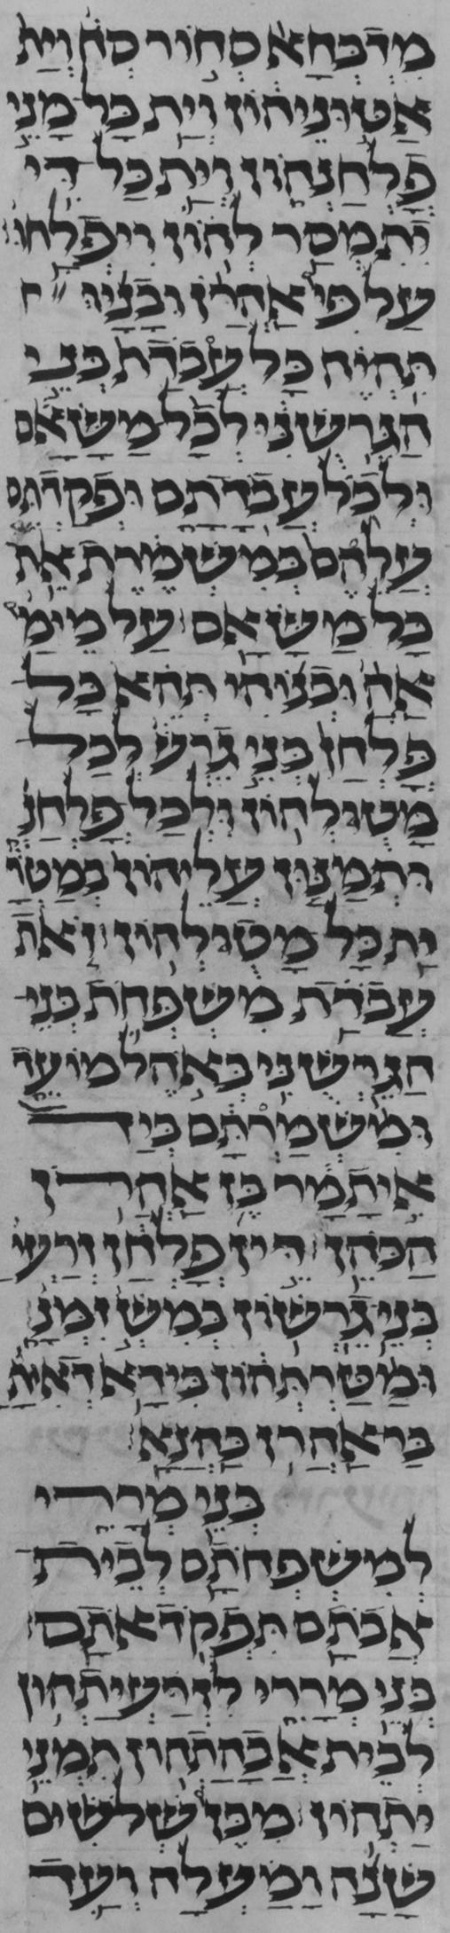 מדבחא סחור סח וית
אטוניהון וית כל מני
פלחנהון וית כל די
יתמסר להון ויפלחו׃
על פי אהרן ובניו
תהיה כל עבדת בני
הגרשני לכל משאם
ולכל עבדתם ופקדתם
עלהם במשמרת את
כל משאם׃ על מימ
אה ובניהי תהא כל
פלחן בני גרש לכל
מטולהון ולכל פלחנ
ותמנון עליהון במטר
ית כל מטולהון׃ זאת
עבדת משפחת בני
הגרשני באהל מועד
ומשמרתם ביד
איתמר בן אהרן
הכהן׃ דין פלחן זרעי
בני גרשון במש זמנ
ומטרתהון בידא דאית
בר אהרן כהנא׃
בני מררי
למשפחתם לבית
אבתם תפקד אתם׃
בני מררי לזרעיתהון
לבית אבהתהון תמני
יתהון׃ מבן שלשים
שנה ומעלה ועד